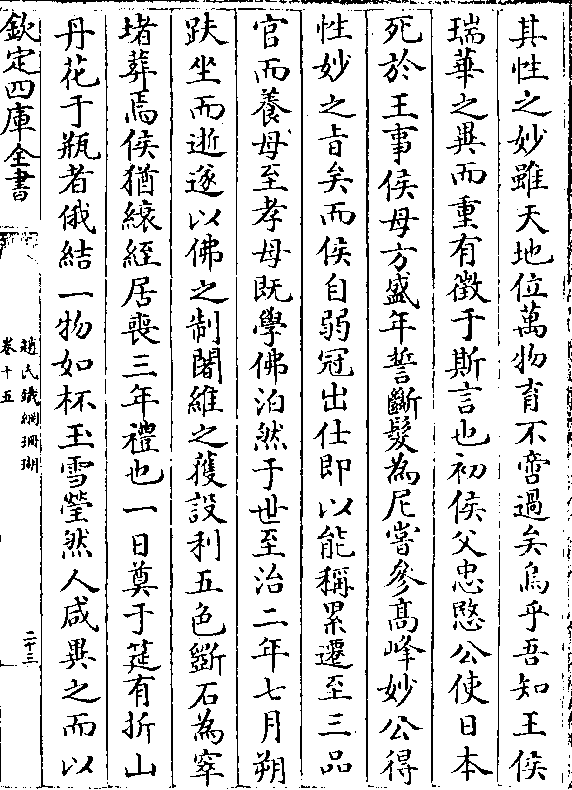 其性之妙雖天地位萬物育不啻過矣烏乎吾知王侯
瑞華之異而重有徵于斯言也初侯父忠愍公使日本
死於王事侯母方盛年誓斷髮為尼嘗參髙峰妙公得
性妙之旨矣而侯自弱冠出仕即以能稱累遷至三品
官而養母至孝母既學佛泊然于世至治二年七月朔
趺坐而逝遂以佛之制闍維之獲設利五色斵石為窣
堵葬焉侯猶縗絰居喪三年禮也一日奠于筵有折山
丹花于瓶者俄結一物如杯玉雪瑩然人咸異之而以
欽定四庫全書
趙氏鐵網珊瑚
卷十五
二十三